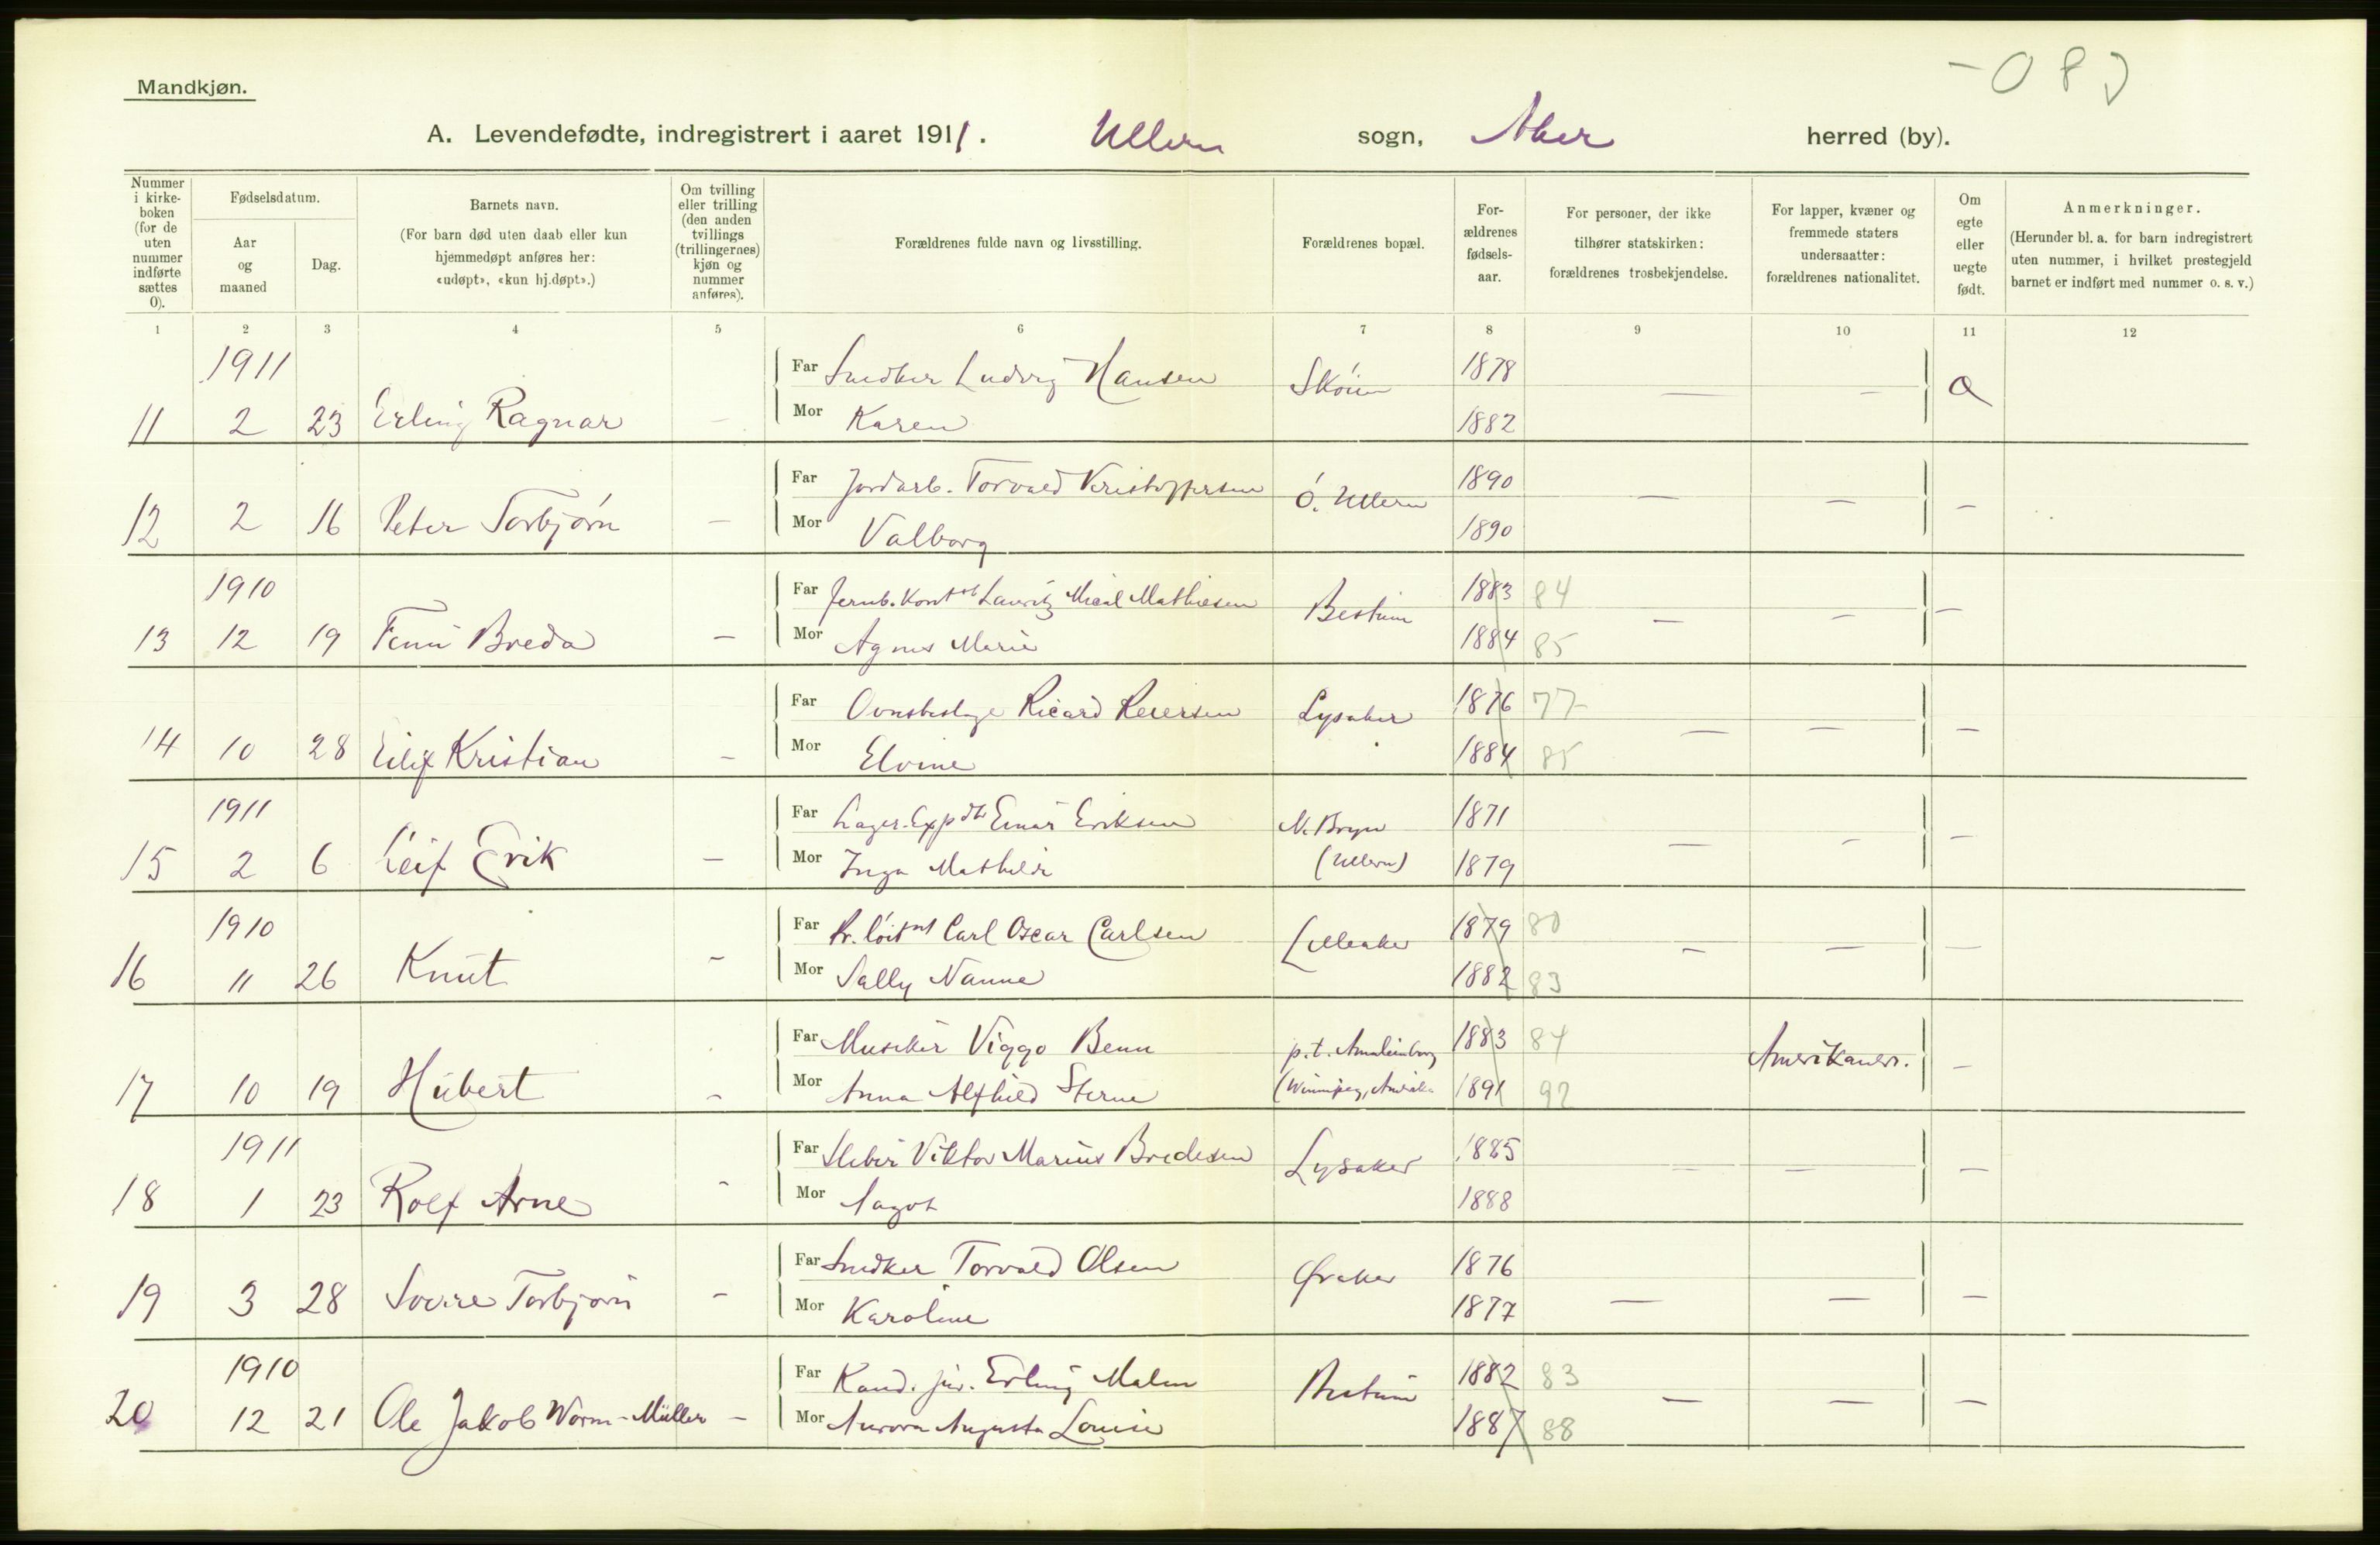 - 0 8
Mandkjøn.
A. Levendefødte, indregistrert i aaret 1911. Ullern sogn, Aker herred (by).
Nummer i kirkeboken (for de uten nummer indførte sættes 0).
Fødselsdatum.
Aar og maaned
Dag.
Barnets navn.
(For barn død uten daab eller kun hjemmedøpt anføres her: «udøpt», «kun hj.døpt».)
Om tvilling eller trilling (den anden tvillings (trillingernes) kjøn og nummer anføres).
Forældrenes fulde navn og livsstilling.
Forældrenes bopæl.
Forældrenes fødselsaar.
For personer, der ikke tilhører statskirken: forældrenes trosbekjendelse.
For lapper, kvæner og fremmede staters undersaatter: forældrenes nationalitet.
Om egte eller uegte født.
Anmerkninger.
(Herunder bl. a. for barn indregistrert uten nummer, i hvilket prestegjeld barnet er indført med nummer o. s. v.)
1 2 3 4 5 6 7 8 9 10 11 12
1911 Far Snedker Ludvig Hansen Skøien 1878 — — a
11 2 23 Erling Ragnar — Mor Karen 1882
Far Jordarb. Torvald Kristoffersen Ö. Ullern 1890 — — —
12 2 16 Peter Torbjørn — Mor Valborg 1890
1910 Far Jernb. Kont Lauritz Mathiesen Bestum 1883 84 — — —
13 12 19 Finn Breda — Mor Agnes Marie 1884 85
Far Ricard Reiersen Lysaker 1876 77 — — —
14 10 28 Eilif Kristian — Mor Elvine 1884 85
1911 Far Lager-Expdtr Einar Eriksen N. Bryn 1871 — — —
15 2 6 Leif Erik — Mor Inga Mathilde (Ullern) 1879
1910 Far Pr. löitnt Carl Oscar Carlsen Lilleaker 1879 80 — — —
16 11 26 Knut — Mor Sally Nanna 1882 83
Far Musiker Viggo Benn p.t. Amalienborg 1883 84 Amerikaner. —
17 10 19 Hubert — Mor Anna Alfhild Sterne (Winnipeg, Amerika 1891 92
1911 Far Viktor Marius Bredesen Lysaker 1885 — — —
18 1 23 Rolf Arne — Mor 1888
Far Snedker Torvald Olsen Øraker 1876 — — —
19 3 28 Sverre Torbjørn — Mor Karoline 1877
1910 Far Kand. jur. Erling Malm Bestum 1882 83 — — —
20 12 21 Ole Jakob Worm-Müller — Mor Aurora Augusta Louise 1887 88